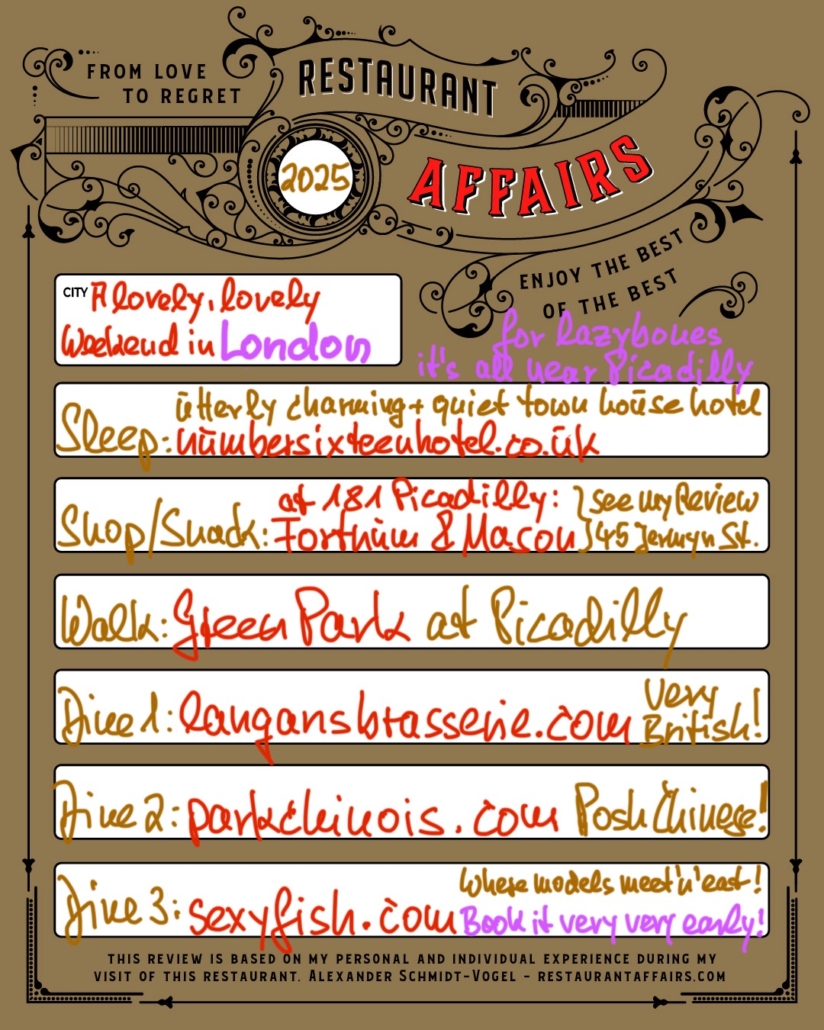 FROM LOVE
TO REGRET
RESTAURANT
2025
AFFAIRS
ENJOY THE BEST
OF THE BEST
CITY A lovely, lovely
Weekend in London
for lazybones
it's all near Picadilly
utterly charming + quiet town house hotel
Sleep: numbersixteenhotel.co.uk
at 181 Picadilly: } see my Review
Shop/Snack: Fortnum & Mason } 45 Jermyn St.
Walk: Green Park at Picadilly
Very
Dine 1: langansbrasserie.com British!
Dine 2: parkchinois.com Posh Chinese!
Where models meet'n'eat!
Dine 3: sexyfish.com Book it very very early!
THIS REVIEW IS BASED ON MY PERSONAL AND INDIVIDUAL EXPERIENCE DURING MY
VISIT OF THIS RESTAURANT. ALEXANDER SCHMIDT-VOGEL – RESTAURANTAFFAIRS.COM